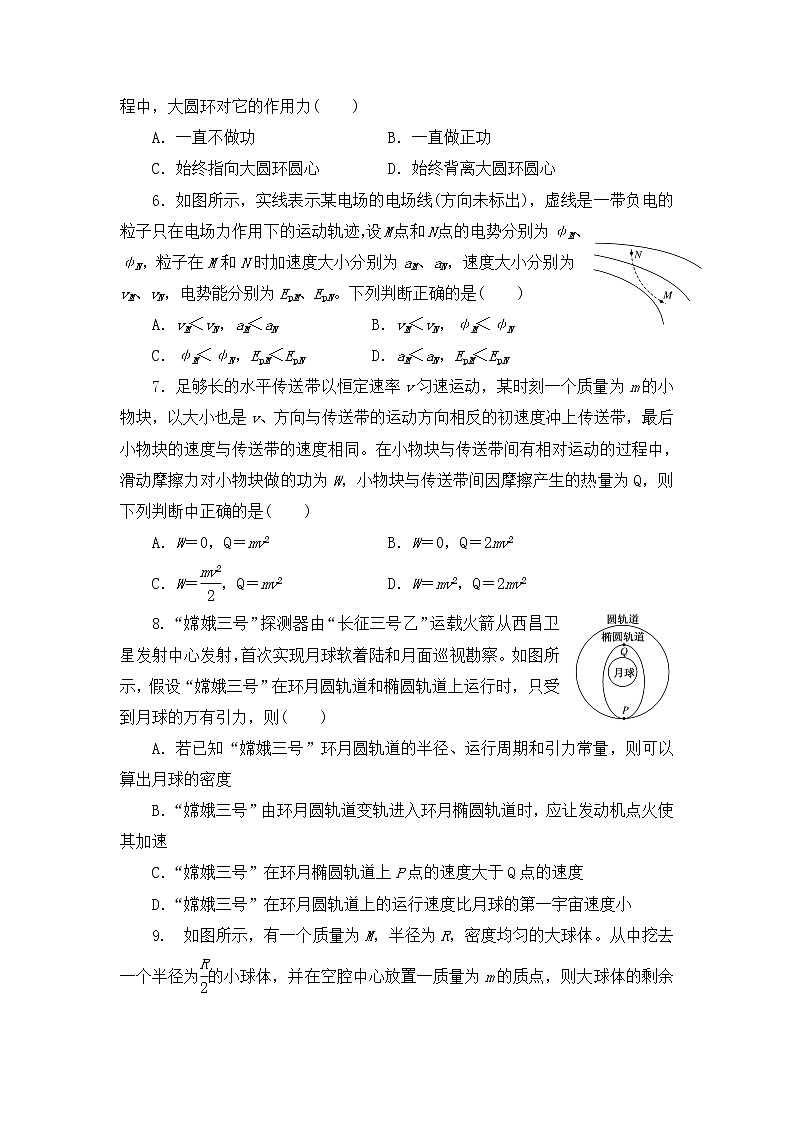 程中，大圆环对它的作用力(　　)
A．一直不做功　　B．一直做正功
C．始终指向大圆环圆心　　D．始终背离大圆环圆心
6．如图所示，实线表示某电场的电场线(方向未标出)，虚线是一带负电的
粒子只在电场力作用下的运动轨迹,设M点和N点的电势分别为 φM、
φN，粒子在 M 和 N 时加速度大小分别为 aM、aN，速度大小分别为
vM、vN，电势能分别为 EpM、EpN。下列判断正确的是(　　)
N
M
A．vM＜vN，aM＜aN　　B．vM＜vN，φM＜φN
C．φM＜φN，EpM＜EpN　　D．aM＜aN，EpM＜EpN
7．足够长的水平传送带以恒定速率 v 匀速运动，某时刻一个质量为 m 的小
物块，以大小也是 v、方向与传送带的运动方向相反的初速度冲上传送带，最后
小物块的速度与传送带的速度相同。在小物块与传送带间有相对运动的过程中，
滑动摩擦力对小物块做的功为 W，小物块与传送带间因摩擦产生的热量为 Q，则
下列判断中正确的是(　　)
A．W＝0，Q＝mv²　　B．W＝0，Q＝2mv²
C．W＝mv²/2，Q＝mv²　　D．W＝mv²，Q＝2mv²
8．“嫦娥三号”探测器由“长征三号乙”运载火箭从西昌卫
星发射中心发射,首次实现月球软着陆和月面巡视勘察。如图所
示，假设“嫦娥三号”在环月圆轨道和椭圆轨道上运行时，只受
到月球的万有引力，则(　　)
圆轨道
椭圆轨道
Q
月球
P
A．若已知“嫦娥三号”环月圆轨道的半径、运行周期和引力常量，则可以
算出月球的密度
B．“嫦娥三号”由环月圆轨道变轨进入环月椭圆轨道时，应让发动机点火使
其加速
C．“嫦娥三号”在环月椭圆轨道上 P 点的速度大于 Q 点的速度
D．“嫦娥三号”在环月圆轨道上的运行速度比月球的第一宇宙速度小
9．　如图所示，有一个质量为 M，半径为 R，密度均匀的大球体。从中挖去
一个半径为R/2的小球体，并在空腔中心放置一质量为 m 的质点，则大球体的剩余